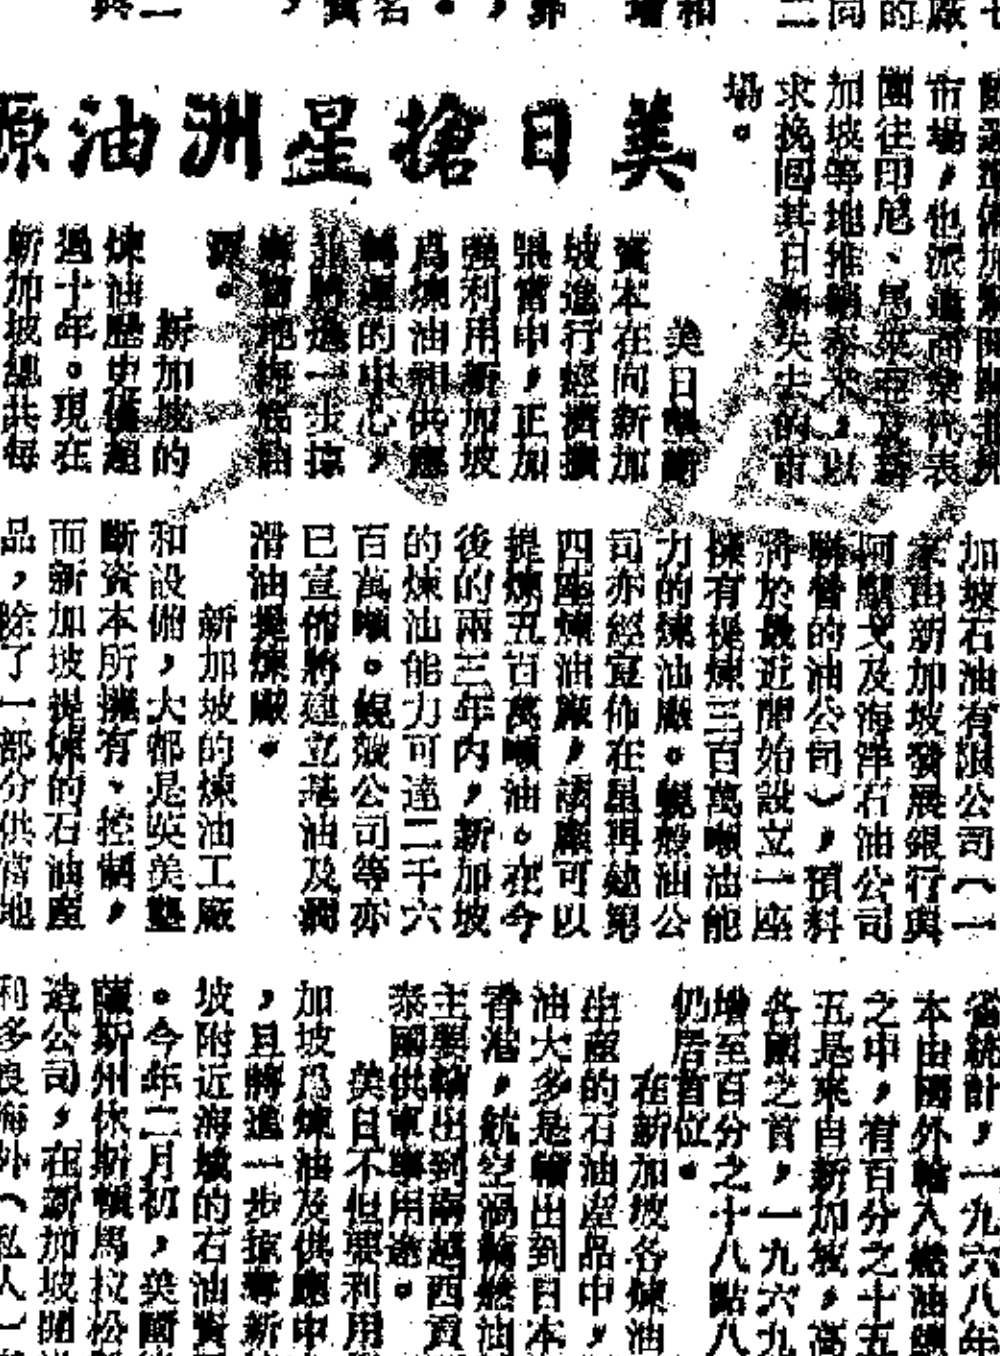 市場，也派遣商業代表
團往印尼、馬來亞及新
加坡等地推銷泰米，以
求挽回其日漸失去的市
場。
美日搶星洲油源
美日壟斷
資本在向新加
坡進行經濟擴
張當中，正加
强利用新加坡
爲煉油和供應
轉運的中心，
並將進一步掠
奪當地海底油
源。
新加坡的
煉油歷史僅超
過十年。現在
新加坡總共每
加坡石油有限公司（一
家由新加坡發展銀行與
阿穆戈及海洋石油公司
聯營的油公司），預料
將於最近開始設立一座
擁有提煉三百萬噸油能
力的煉油廠。蜆殼油公
司亦經宣佈在星再建第
四座煉油廠，該廠可以
提煉五百萬噸油。在今
後的兩三年內，新加坡
的煉油能力可達二千六
百萬噸。蜆殼公司等亦
已宣佈將建立基油及潤
滑油提煉廠。
新加坡的煉油工廠
和設備，大都是英美壟
斷資本所擁有、控制，
而新加坡提煉的石油產
品，除了一部分供當地
統計，一九六八年
本由國外輸入燃油總
之中，有百分之十五
五是來自新加坡，高
各國之首，一九六九
增至百分之十八點八
仍居首位。
在新加坡各煉油
生產的石油產品中，
油大多是輸出到日本
香港，航空渦輪燃油
主要輸出到南越西貢
泰國供軍事用途。
美日不但要利用
加坡爲煉油及供應中
，且將進一步掠奪新
坡附近海域的石油資
。今年二月初，美國
薩斯州休斯頓馬拉松
造公司，在新加坡開
利多浪海外（私人）